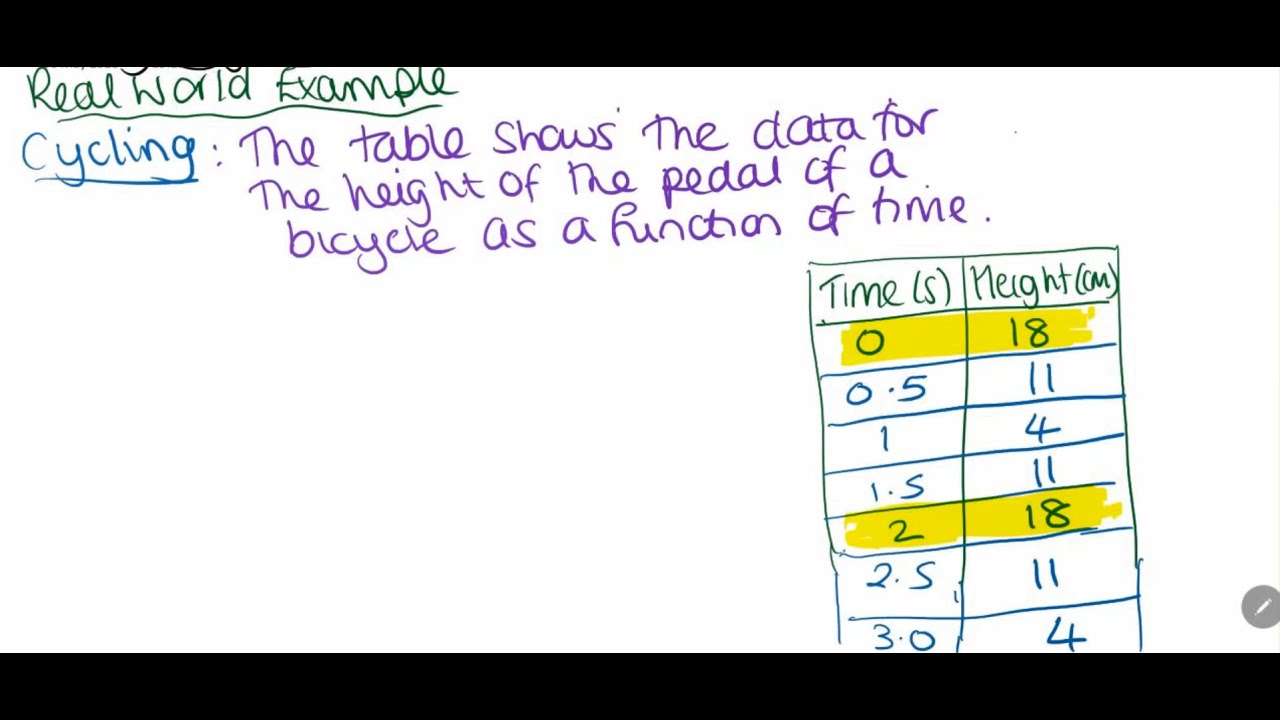 Real World Example
Cycling: The table shows the data for
The height of the pedal of a
bicycle as a function of time.
Time (s) Height (cm)
0 18
0.5 11
1 4
1.5 11
2 18
2.5 11
3.0 4